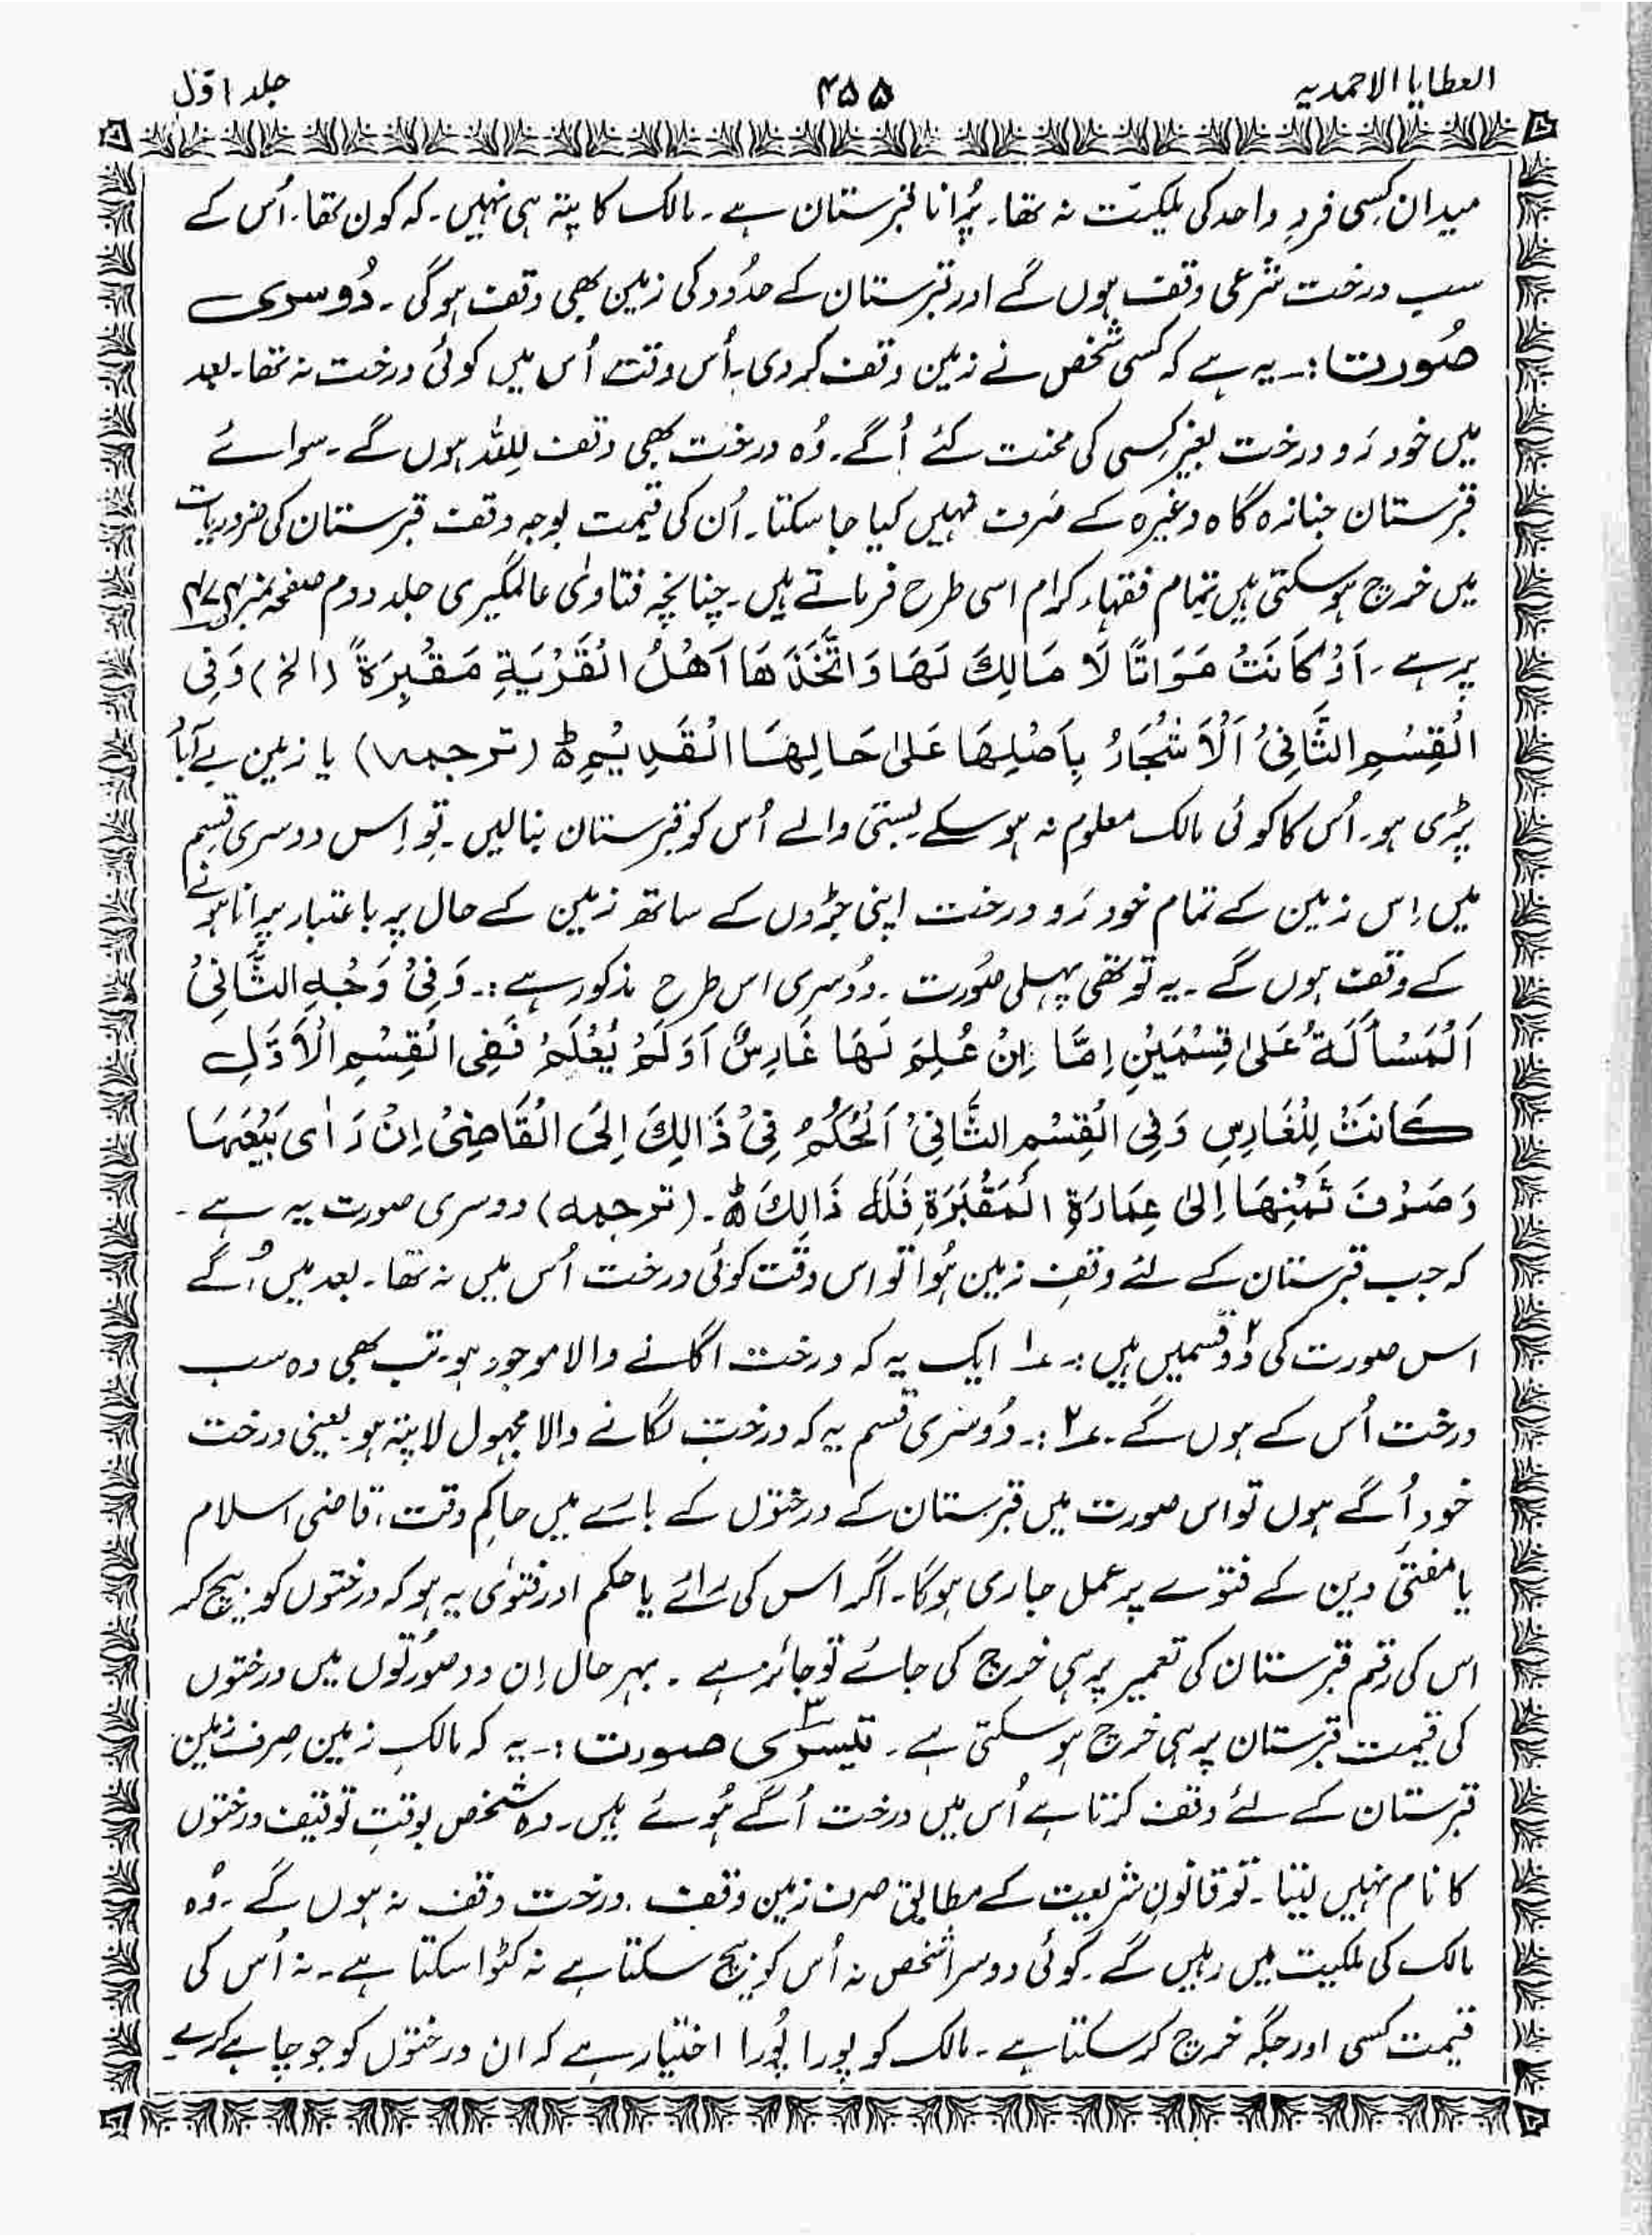 العطایا الاحمدیہ
۴۵۵
جلد اوّل
میدان کِسی فردِ واحد کی ملکیّت نہ تھا۔ پُرانا قبرستان ہے۔ مالک کا پتہ ہی نہیں۔ کہ کون تھا۔ اُس کے
سب درخت شرعی وقف ہوں گے اور قبرستان کے حدُود کی زمین بھی وقف ہوگی۔ دُوسری
صُورت:۔ یہ ہے کہ کسی شخص نے زمین وقف کر دی۔ اُس وقت اُس میں کوئی درخت نہ تھا۔ بعد
میں خود رَو درخت بغیر کِسی کی محنت کئے اُگے۔ وُہ درخت بھی وقف لِلّٰہ ہوں گے۔ سوائے
قبرستان جنازہ گاہ وغیرہ کے صَرف نہیں کیا جا سکتا۔ اُن کی قیمت بوجہ وقف قبرستان کی ضروریات
میں خرچ ہو سکتی ہیں تمام فقہاء کرام اسی طرح فرماتے ہیں۔ چنانچہ فتاویٰ عالمگیری جلد دوم صفحہ نمبر ۴۷۴
پر ہے۔ اَوْ کَانَتْ مَوَاتًا لَا مَالِكَ لَهَا وَاتَّخَذَهَا اَهْلُ الْقَرْيَةِ مَقْبِرَةً (الخ) وَفِی
الْقِسْمِ الثَّانِیْ اَلْاَشْجَارُ بِاَصْلِهَا عَلیٰ حَالِهَا الْقَدِيْمِ ط (ترجمہ) یا زمین بے آباد
پڑی ہو۔ اُس کا کوئی مالک معلوم نہ ہو سکے بستی والے اُس کو قبرستان بنا لیں۔ تو اِس دوسری قِسم
میں اِس زمین کے تمام خود رَو درخت اپنی جڑوں کے ساتھ زمین کے حال پر باعتبار پرانا ہونے
کے وقف ہوں گے۔ یہ تو تھی پہلی صُورت۔ دُوسری اس طرح مذکور ہے:۔ وَفِیْ وَجْهِ الثَّانِیْ
اَلْمَسْاَلَةُ عَلیٰ قِسْمَيْنِ اِمَّا اِنْ عُلِمَ لَهَا غَارِسٌ اَوْ لَمْ يُعْلَمْ فَفِی الْقِسْمِ الْاَوَّلِ
کَانَتْ لِلْغَارِسِ وَفِی الْقِسْمِ الثَّانِیْ اَلْحُکْمُ فِیْ ذَالِكَ اِلَی الْقَاضِیْ اِنْ رَاٰی بَيْعَهَا
وَصَرْفَ ثَمْنِهَا اِلیٰ عِمَارَةِ الْمَقْبَرَةِ فَلَهٗ ذَالِكَ ط۔ (ترجمہ) دوسری صورت یہ ہے۔
کہ جب قبرستان کے لئے وقفِ زمین ہُوا تو اس وقت کوئی درخت اُس میں نہ تھا۔ بعد میں اُگے
اس صورت کی دو ۲ قسمیں ہیں:۔ ۱؎ ایک یہ کہ درخت اگانے والا موجود ہو۔ تب بھی وہ سب
درخت اُس کے ہوں گے۔ ۲؎:۔ دُوسری قسم یہ کہ درخت لگانے والا مجہول لاپتہ ہو۔ یعنی درخت
خود اُگے ہوں تو اس صورت میں قبرستان کے درختوں کے بارے میں حاکِم وقت، قاضی اسلام
یا مفتیٔ دین کے فتوے پر عمل جاری ہوگا۔ اگر اس کی رائے یا حکم اور فتویٰ یہ ہو کہ درختوں کو بیچ کر
اس کی رقم قبرستان کی تعمیر پر ہی خرچ کی جائے تو جائز ہے۔ بہر حال اِن دو صُورتوں میں درختوں
کی قیمت قبرستان پر ہی خرچ ہو سکتی ہے۔ تیسری ۳ صورت:۔ یہ کہ مالکِ زمین صِرف زمین
قبرستان کے لئے وقف کرتا ہے اُس میں درخت اُگے ہُوئے ہیں۔ وہ شخص بوقتِ توقیف درختوں
کا نام نہیں لیتا۔ تو قانونِ شریعت کے مطابق صرف زمین وقف۔ درخت وقف نہ ہوں گے۔ وُہ
مالک کی ملکیت میں رہیں گے۔ کوئی دوسرا شخص نہ اُس کو بیچ سکتا ہے نہ کٹوا سکتا ہے۔ نہ اُس کی
قیمت کسی اور جگہ خرچ کر سکتا ہے۔ مالک کو پورا پُورا اختیار ہے کہ ان درختوں کو جو چاہے کرے۔